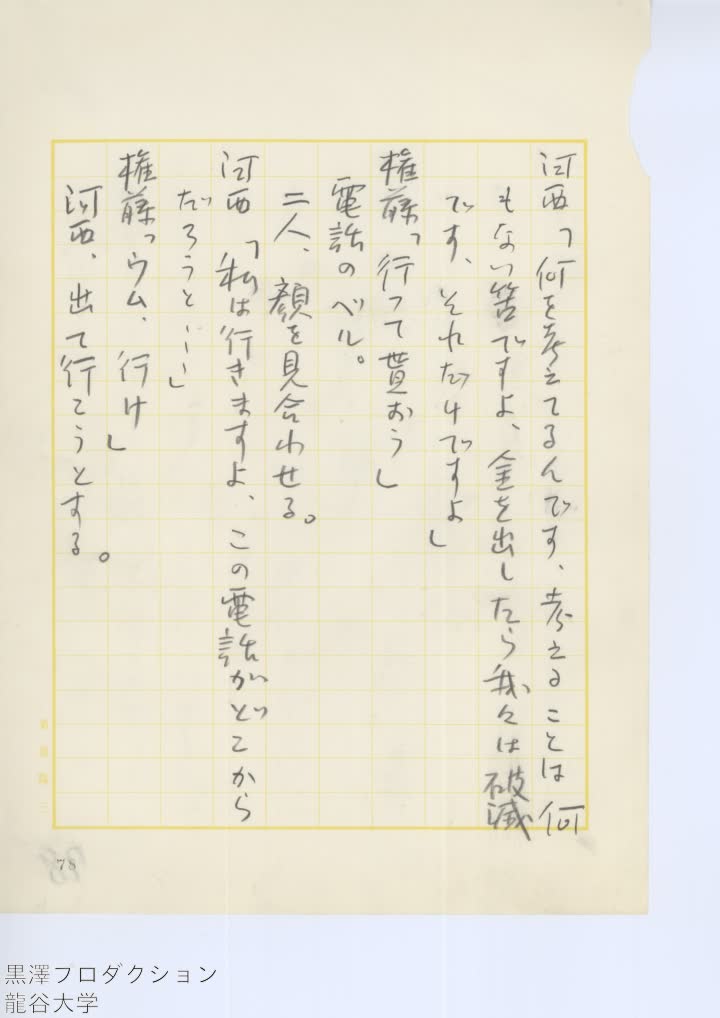 河西「何を考えてるんです、考えることは何
もない筈ですよ、金を出したら我々は破滅
です、それだけですよ」
権藤「行って貰おう」
電話のベル。
二人、顔を見合わせる。
河西「私は行きますよ、この電話がどこから
だろうと……」
権藤「ウム、行け」
河西、出て行こうとする。
78
黒澤プロダクション
龍谷大学